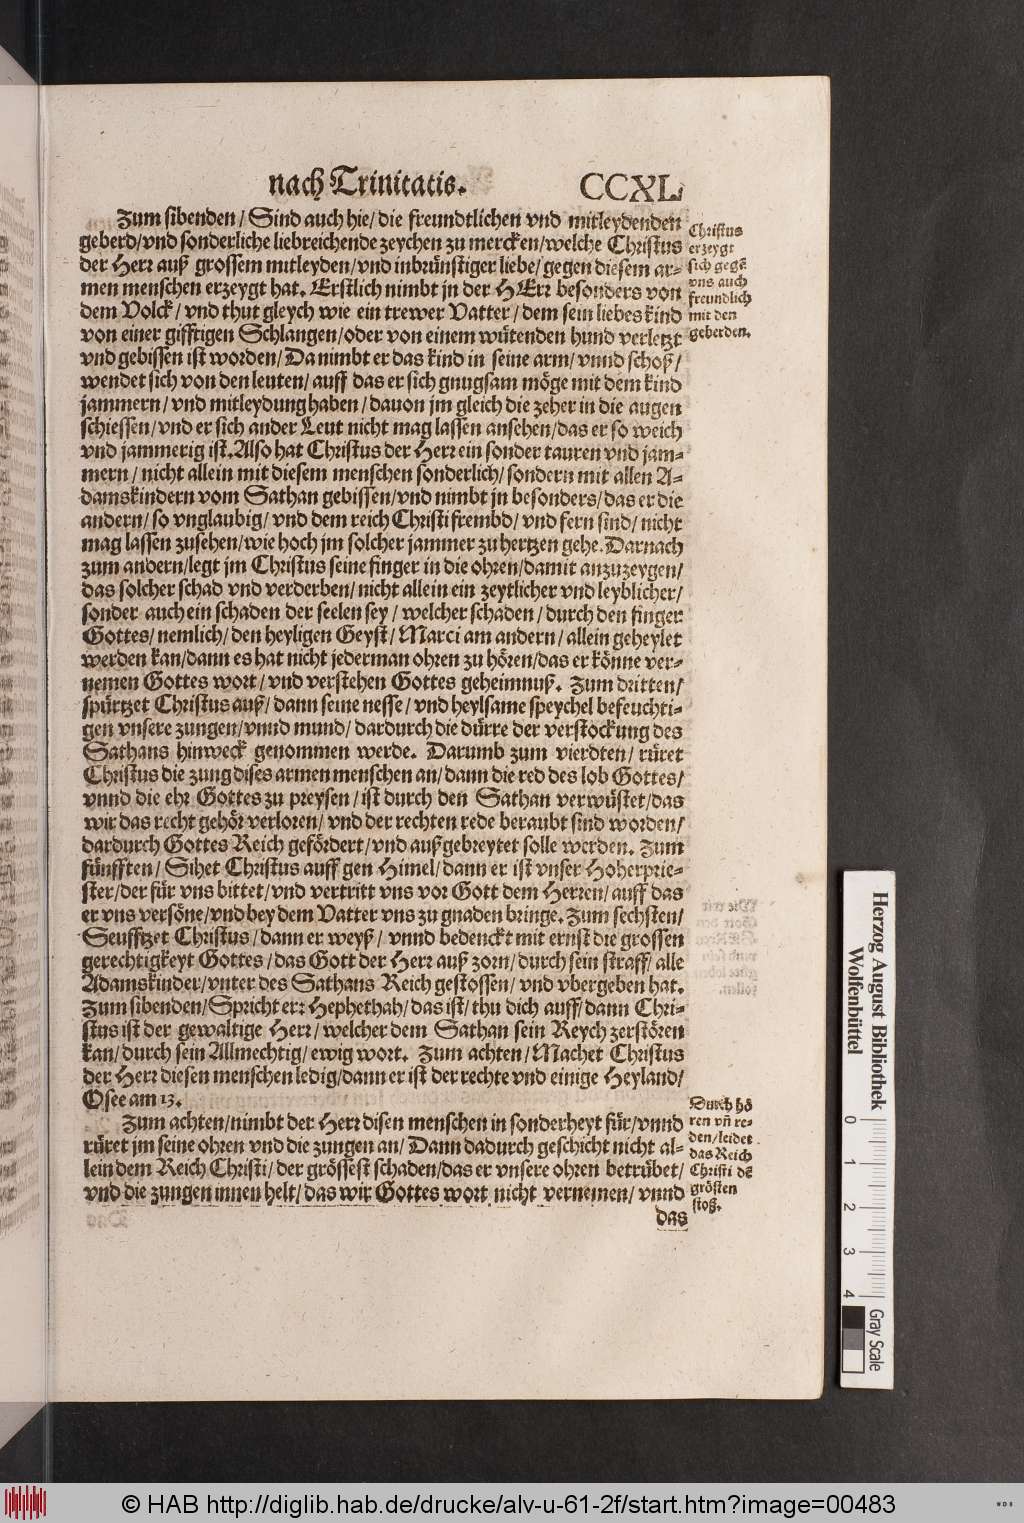 nach Trinitatis. CCXL.
Zum sibenden / Sind auch hie / die freundtlichen vnd mitleydenden
geberd / vnd sonderliche liebreichende zeychen zu mercken / welche Christus
der Herr auß grossem mitleyden / vnd inbrünstiger liebe / gegen diesem ar-
men menschen erzeygt hat. Erstlich nimbt jn der HErr besonders von
dem Volck / vnd thut gleych wie ein trewer Vatter / dem sein liebes kind
von einer gifftigen Schlangen / oder von einem wütenden hund verletzt
vnd gebissen ist worden / Da nimbt er das kind in seine arm / vnnd schoß /
wendet sich von den leuten / auff das er sich gnugsam möge mit dem kind
jammern / vnd mitleydung haben / dauon jm gleich die zeher in die augen
schiessen / vnd er sich ander Leut nicht mag lassen ansehen / das er so weich
vnd jammerig ist. Also hat Christus der Herr ein sonder tauren vnd jam-
mern / nicht allein mit diesem menschen sonderlich / sondern mit allen A-
damskindern vom Sathan gebissen / vnd nimbt jn besonders / das er die
andern / so vnglaubig / vnd dem reich Christi frembd / vnd fern sind / nicht
mag lassen zusehen / wie hoch jm solcher jammer zu hertzen gehe. Darnach
zum andern / legt jm Christus seine finger in die ohren / damit anzuzeygen /
das solcher schad vnd verderben / nicht allein ein zeytlicher vnd leyblicher /
sonder auch ein schaden der seelen sey / welcher schaden / durch den finger
Gottes / nemlich / den heyligen Geyst / Marci am andern / allein geheylet
werden kan / dann es hat nicht jederman ohren zu hören / das er könne ver-
nemen Gottes wort / vnd verstehen Gottes geheimnuß. Zum dritten /
spürtzet Christus auß / dann seine nesse / vnd heylsame speychel befeuchti-
gen vnsere zungen / vnnd mund / dardurch die dürre der verstockung des
Sathans hinweck genommen werde. Darumb zum vierdten / rüret
Christus die zung dises armen menschen an / dann die red des lob Gottes /
vnnd die ehr Gottes zu preysen / ist durch den Sathan verwüstet / das
wir das recht gehör verloren / vnd der rechten rede beraubt sind worden /
dardurch Gottes Reich gefördert / vnd außgebreytet solle werden. Zum
fünfften / Sihet Christus auff gen Himel / dann er ist vnser Hoherprie-
ster / der für vns bittet / vnd vertritt vns vor Gott dem Herren / auff das
er vns versöne / vnd bey dem Vatter vns zu gnaden bringe. Zum sechsten /
Seufftzet Christus / dann er weyß / vnnd bedenckt mit ernst die grossen
gerechtigkeyt Gottes / das Gott der Herr auß zorn / durch sein straff / alle
Adamskinder / vnter des Sathans Reich gestossen / vnd vbergeben hat.
Zum sibenden / Spricht err Hephethah / das ist / thu dich auff / dann Chri-
stus ist der gewaltige Herr / welcher dem Sathan sein Reych zerstören
kan / durch sein Allmechtig / ewig wort. Zum achten / Machet Christus
der Herr diesen menschen ledig / dann er ist der rechte vnd einige Heyland /
Osee am 13.
Zum achten / nimbt der Herr disen menschen in sonderheyt für / vnnd
rüret jm seine ohren vnd die zungen an / Dann dadurch geschicht nicht al-
lein dem Reich Christi / der grössest schaden / das er vnsere ohren betrübet /
vnd die zungen innen helt / das wir Gottes wort nicht vernemen / vnnd
das
Christus
erzeygt
sich gegē
vns auch
freundlich
mit den
geberden.
Durch hö
ren vñ re-
den / leidet
das Reich
Christi dē
grösten
stoß.
Herzog August Bibliothek
Wolfenbüttel
0 1 2 3 4
Gray Scale
© HAB http://diglib.hab.de/drucke/alv-u-61-2f/start.htm?image=00483